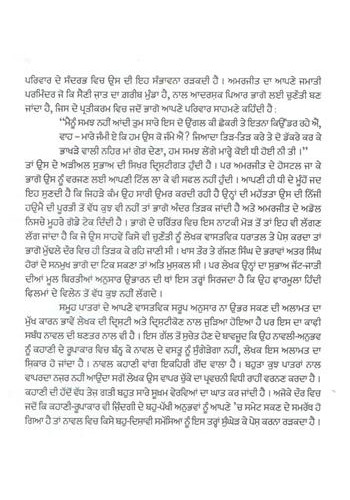 ਪਰਿਵਾਰ ਦੇ ਸੰਦਰਭ ਵਿਚ ਉਸ ਦੀ ਇਹ ਸੰਭਾਵਨਾ ਰੜਕਦੀ ਹੈ । ਅਮਰਜੀਤ ਦਾ ਆਪਣੇ ਜਮਾਤੀ
ਪਰਮਿੰਦਰ ਜੋ ਕਿ ਸੈਣੀ ਜ਼ਾਤ ਦਾ ਗ਼ਰੀਬ ਮੁੰਡਾ ਹੈ, ਨਾਲ ਆਦਰਸ਼ਕ ਪਿਆਰ ਭਾਗੋ ਲਈ ਚੁਣੌਤੀ ਬਣ
ਜਾਂਦਾ ਹੈ, ਜਿਸ ਦੇ ਪ੍ਰਤੀਕਰਮ ਵਿਚ ਜਦੋਂ ਭਾਗੋ ਆਪਣੇ ਪਰਿਵਾਰ ਸਾਹਮਣੇ ਕਹਿੰਦੀ ਹੈ :
"ਮੈਨੂੰ ਸਮਝ ਨਹੀਂ ਆਂਦੀ ਤੁਮ ਸਾਰੇ ਇਸ ਦੋ ਉਂਗਲ ਕੀ ਛੋਕਰੀ ਤੇ ਇਤਨਾ ਕਿਉਂਡਰ ਰਹੇ ਐਂ,
ਵਾਹ - ਮਾਰੇ ਜੰਮੀ ਏ ਕਿ ਹਮ ਉਸ ਕੇ ਜੰਮੇ ਐਂ ? ਜਿਆਦਾ ਤਿੜ-ਤਿੜ ਕਰੇ ਤੇ ਦੋ ਡੱਕਰੇ ਕਰ ਕੇ
ਭਾਖੜੇ ਵਾਲੀ ਨਹਿਰ ਮਾਂ ਗੇਰ ਦੇਣਾ, ਹਮ ਸਮਝ ਲੇਂਗੇ ਮਾਰ੍ਹੇ ਕੋਈ ਧੀ ਹੋਈ ਨੀ ਤੀ ।"
ਤਾਂ ਉਸ ਦੇ ਅੜੀਅਲ ਸੁਭਾਅ ਦੀ ਸਿਖਰ ਦ੍ਰਿਸ਼ਟੀਗਤ ਹੁੰਦੀ ਹੈ । ਪਰ ਅਮਰਜੀਤ ਦੇ ਹੋਸਟਲ ਜਾ ਕੇ
ਭਾਗੋ ਉਸ ਨੂੰ ਵਰਜਣ ਲਈ ਆਪਣੀ ਟਿੱਲ ਲਾ ਕੇ ਵੀ ਸਫਲ ਨਹੀਂ ਹੁੰਦੀ । ਆਪਣੀ ਹੀ ਧੀ ਦੇ ਮੂੰਹੋਂ ਜਦ
ਇਹ ਸੁਣਦੀ ਹੈ ਕਿ ਜਿਹੜੇ ਕੰਮ ਉਹ ਸਾਰੀ ਉਮਰ ਕਰਦੀ ਰਹੀ ਹੈ ਉਨ੍ਹਾਂ ਦੀ ਮਹੱਤਤਾ ਉਸ ਦੀ ਨਿੱਜੀ
ਹਉਮੈਂ ਦੀ ਪੂਰਤੀ ਤੋਂ ਵੱਧ ਕੁਝ ਵੀ ਨਹੀਂ ਤਾਂ ਭਾਗੋ ਅੰਦਰ ਤਿੜਕ ਜਾਂਦੀ ਹੈ ਅਤੇ ਅਮਰਜੀਤ ਦੇ ਅਡੋਲ
ਨਿਸਚੇ ਮੂਹਰੇ ਗੋਡੇ ਟੇਕ ਦਿੰਦੀ ਹੈ । ਭਾਗੋ ਦੇ ਚਰਿੱਤਰ ਵਿਚ ਇਸ ਨਾਟਕੀ ਮੋੜ ਤੋਂ ਤਾਂ ਇਹ ਵੀ ਲੱਗਣ
ਲੱਗ ਜਾਂਦਾ ਹੈ ਕਿ ਜੇ ਉਸ ਸਾਹਵੇਂ ਕਿਸੇ ਵੀ ਚੁਣੌਤੀ ਨੂੰ ਲੇਖਕ ਵਾਸਤਵਿਕ ਧਰਾਤਲ ਤੇ ਪੇਸ਼ ਕਰਦਾ ਤਾਂ
ਭਾਗੋ ਮੁੱਢਲੇ ਦੌਰ ਵਿਚ ਹੀ ਤਿੜਕ ਕੇ ਰਹਿ ਜਾਣੀ ਸੀ । ਖਾਸ ਤੌਰ ਤੇ ਗੱਜਣ ਸਿੰਘ ਦੇ ਭਰਾਵਾਂ ਅਤਰ ਸਿੰਘ
ਹੋਰਾਂ ਦੇ ਸਨਮੁਖ ਭਾਗੋ ਦਾ ਟਿਕ ਸਕਣਾ ਤਾਂ ਅਤਿ ਮੁਸ਼ਕਲ ਸੀ । ਪਰ ਲੇਖਕ ਉਨ੍ਹਾਂ ਦਾ ਸੁਭਾਅ ਜੱਟ-ਜਾਤੀ
ਦੀਆਂ ਮੂਲ ਬਿਰਤੀਆਂ ਅਨੁਸਾਰ ਉਭਾਰਨ ਦੀ ਥਾਂ ਇਸ ਤਰ੍ਹਾਂ ਸਿਰਜਦਾ ਹੈ ਕਿ ਉਹ ਫਾਰਮੂਲਾ ਹਿੰਦੀ
ਫਿਲਮਾਂ ਦੇ ਵਿਲੇਨ ਤੋਂ ਵੱਧ ਕੁਝ ਨਹੀਂ ਲਗਦੇ ।
ਸਮੂਹ ਪਾਤਰਾਂ ਦੇ ਆਪਣੇ ਵਾਸਤਵਿਕ ਸਰੂਪ ਅਨੁਸਾਰ ਨਾ ਉਭਰ ਸਕਣ ਦੀ ਅਲਾਮਤ ਦਾ
ਮੁੱਖ ਕਾਰਨ ਭਾਵੇਂ ਲੇਖਕ ਦੀ ਦ੍ਰਿਸ਼ਟੀ ਅਤੇ ਦ੍ਰਿਸ਼ਟੀਕੋਣ ਨਾਲ ਜੁੜਿਆ ਹੋਇਆ ਹੈ ਪਰ ਇਸ ਦਾ ਕਾਫੀ
ਸਬੰਧ ਨਾਵਲ ਦੀ ਬਣਤਰ ਨਾਲ ਵੀ ਹੈ । ਇਸ ਗੱਲ ਤੋਂ ਸੁਚੇਤ ਹੋਣ ਦੇ ਬਾਵਜੂਦ ਕਿ ਉਹ ਨਾਵਲੀ-ਅਨੁਭਵ
ਨੂੰ ਕਹਾਣੀ ਦੇ ਰੂਪਾਕਾਰ ਵਿਚ ਬੰਨ੍ਹ ਕੇ ਨਾਵਲ ਦੇ ਵਸਤੂ ਨੂੰ ਸੁੰਗੇੜੇਗਾ ਨਹੀਂ, ਲੇਖਕ ਇਸ ਅਲਾਮਤ ਦਾ
ਸ਼ਿਕਾਰ ਹੋ ਜਾਂਦਾ ਹੈ । ਨਾਵਲ ਕਹਾਣੀ ਵਾਂਗ ਇਕਹਿਰੀ ਗੋਂਦ ਵਾਲਾ ਹੈ । ਬਹੁਤਾ ਕੁਝ ਪਾਤਰਾਂ ਨਾਲ
ਵਾਪਰਦਾ ਨਜ਼ਰ ਨਹੀਂ ਆਉਂਦਾ ਸਗੋਂ ਲੇਖਕ ਉਸ ਵਾਪਰ ਚੁੱਕੇ ਦਾ ਪ੍ਰਵਚਨੀ ਵਿਧੀ ਰਾਹੀਂ ਵਰਨਣ ਕਰਦਾ ਹੈ ।
ਕਹਾਣੀ ਦੀ ਹੱਦੋਂ ਵੱਧ ਤੇਜ਼ ਗਤੀ ਬਹੁਤ ਸਾਰੇ ਸੂਖਮ ਵੇਰਵਿਆਂ ਦਾ ਘਾਤ ਕਰ ਜਾਂਦੀ ਹੈ । ਅਜੋਕੇ ਦੌਰ ਵਿਚ
ਜਦੋਂ ਕਿ ਕਹਾਣੀ-ਰੂਪਾਕਾਰ ਵੀ ਜ਼ਿੰਦਗੀ ਦੇ ਬਹੁ-ਪੱਖੀ ਅਨੁਭਵਾਂ ਨੂੰ ਆਪਣੇ 'ਚ ਸਮੇਟ ਸਕਣ ਦੇ ਸਮਰੱਥ ਹੋ
ਗਿਆ ਹੈ ਤਾਂ ਨਾਵਲ ਵਿਚ ਕਿਸੇ ਬਹੁ-ਦਿਸ਼ਾਵੀ ਸਮੱਸਿਆ ਨੂੰ ਇਸ ਤਰ੍ਹਾਂ ਸੁੰਘੇੜ ਕੇ ਪੇਸ਼ ਕਰਨਾ ਰੜਕਦਾ ਹੈ ।